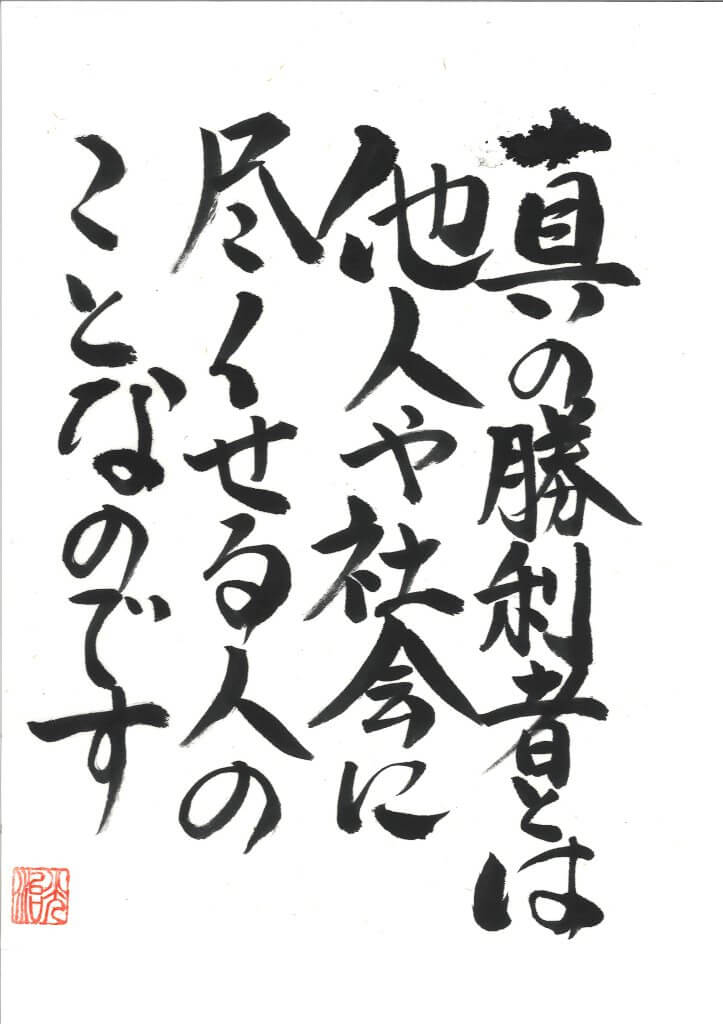 真の勝利者とは
他人や社会に
尽くせる人の
ことなのです